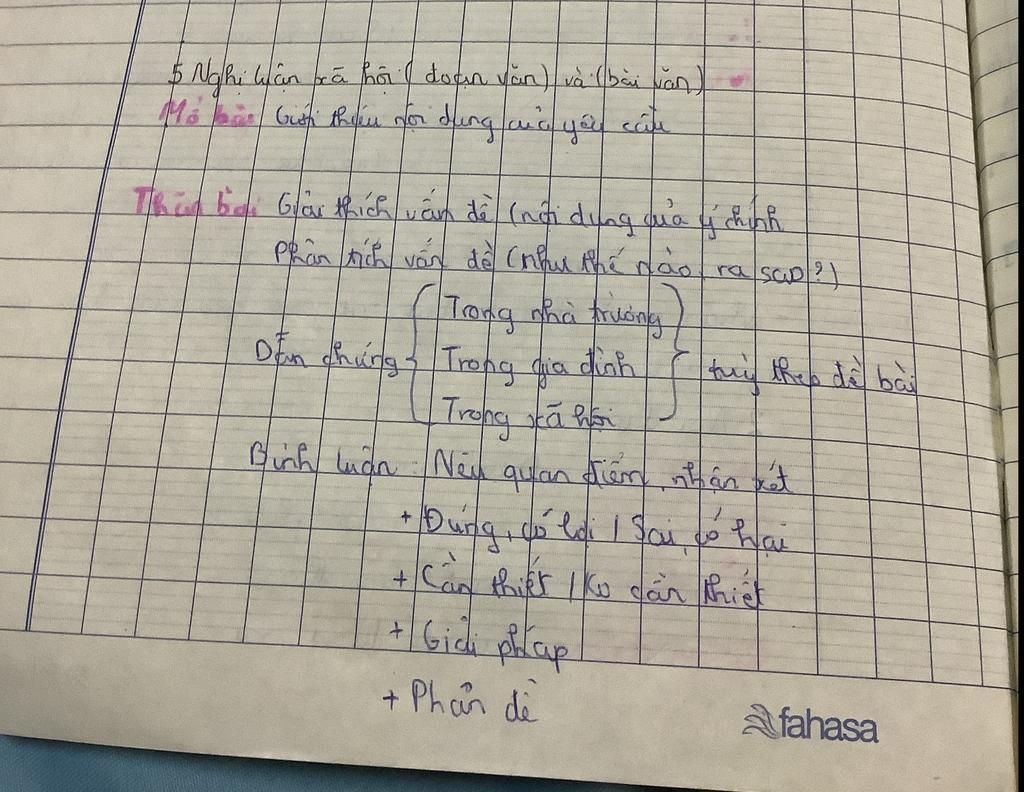 5 Nghị luận xã hội (đoạn văn) và (bài văn)
Mở bài Giới thiệu nội dung của yêu cầu
Thân bài Giải thích vấn đề (nội dung của ý chính
Phân tích vấn đề (như thế nào, ra sao?)
Trong nhà trường
Dẫn chứng { Trong gia đình } tuỳ theo đề bài
Trong xã hội
Bình luận: Nêu quan điểm, nhận xét
+ Đúng, có lợi / Sai, có hại
+ Cần thiết / Ko cần thiết
+ Giải pháp
+ Phản đề
fahasa